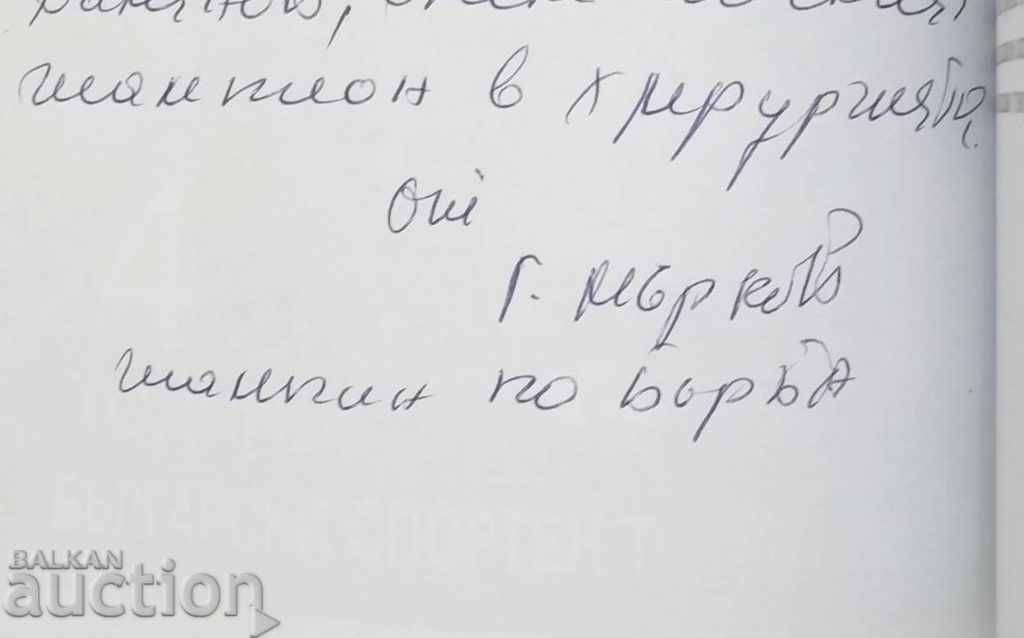 шампион в хирургията,
от
Г. Мърков
шампин по борба
BALKAN
auction